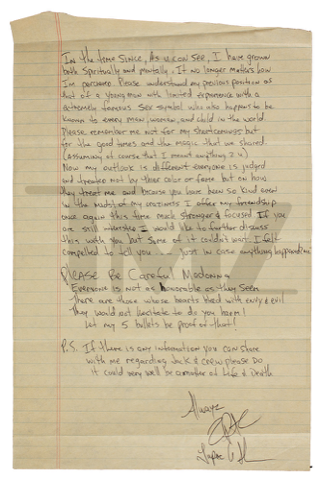 In the time since, As u can see, I have grown
both Spiritually and mentally. It no longer matters how
I'm perceived. Please understand my previous position as
that of a young man with limited experience with a
extremely famous sex symbol who also happens to be
known to every man, woman, and child in the world.
Please remember me not for my shortcomings but
for the good times and the magic that we shared.
(assuming of course that I meant anything 2 u)
Now my outlook is different everyone is judged
and treated not by their color or fame but on how
they treat me and because you have been so kind even
in the midst of my I offer my friendship
once again this time much stronger & focused If you
are still interested I would like to further discuss
this with you but some of it couldn't wait. I felt
compelled to tell you just in case anything happened 2 me
PLEASE Be Careful Madonna
Everyone is not as honorable as they seem
There are those whose hearts bleed with envy & evil
They would not hesitate to do you harm!
Let my 5 bullets be proof of that!
P.S. If there is any information you can share
with me regarding Jack & crew please Do
it could very well be a matter of Life & Death
Always